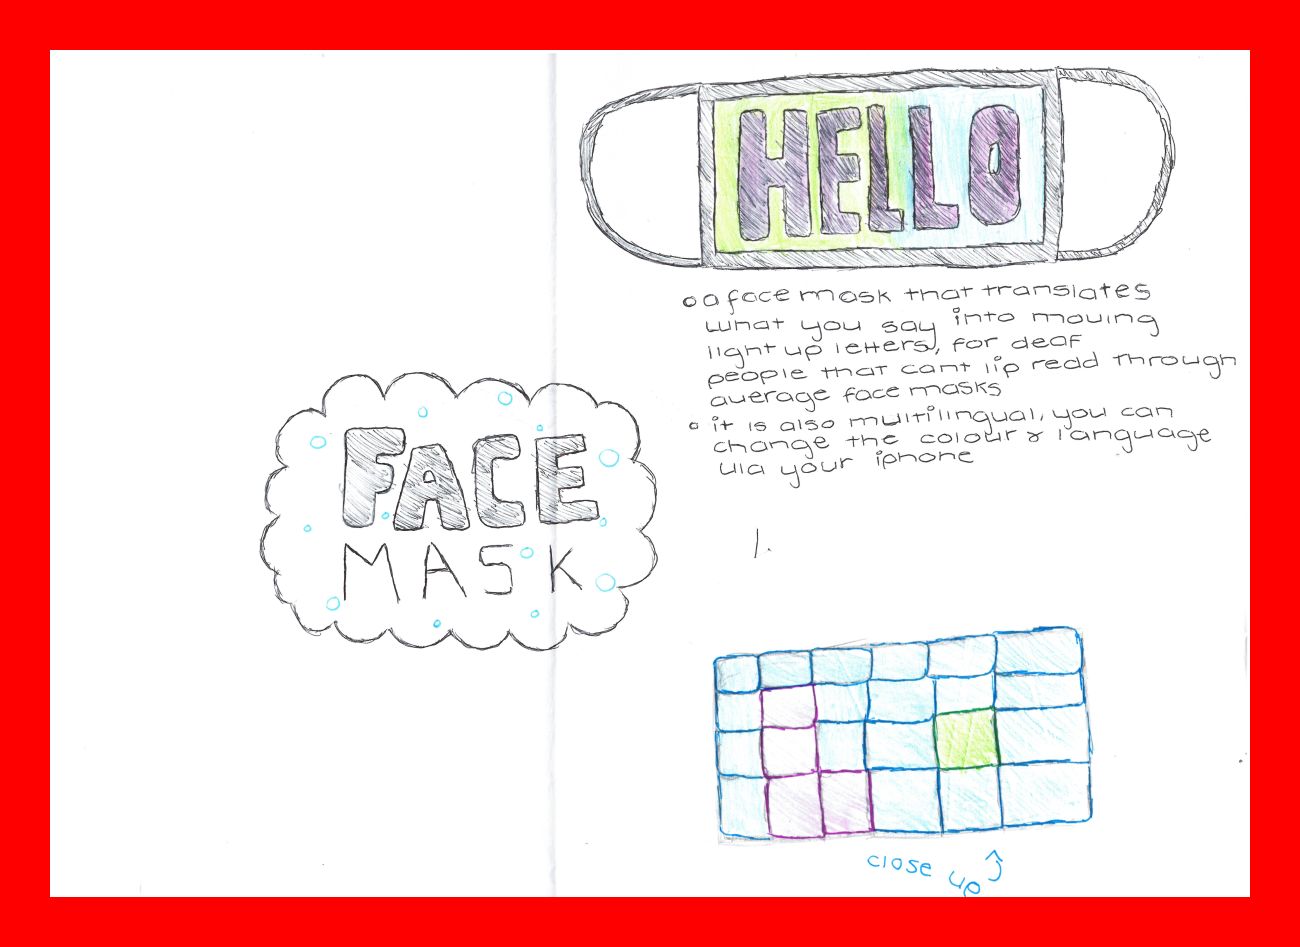 HELLO
o a face mask that translates
what you say into moving
light up letters, for deaf
people that cant lip read through
average face masks
o it is also multilingual, you can
change the colour & language
via your iphone
FACE
MASK
1.
close up